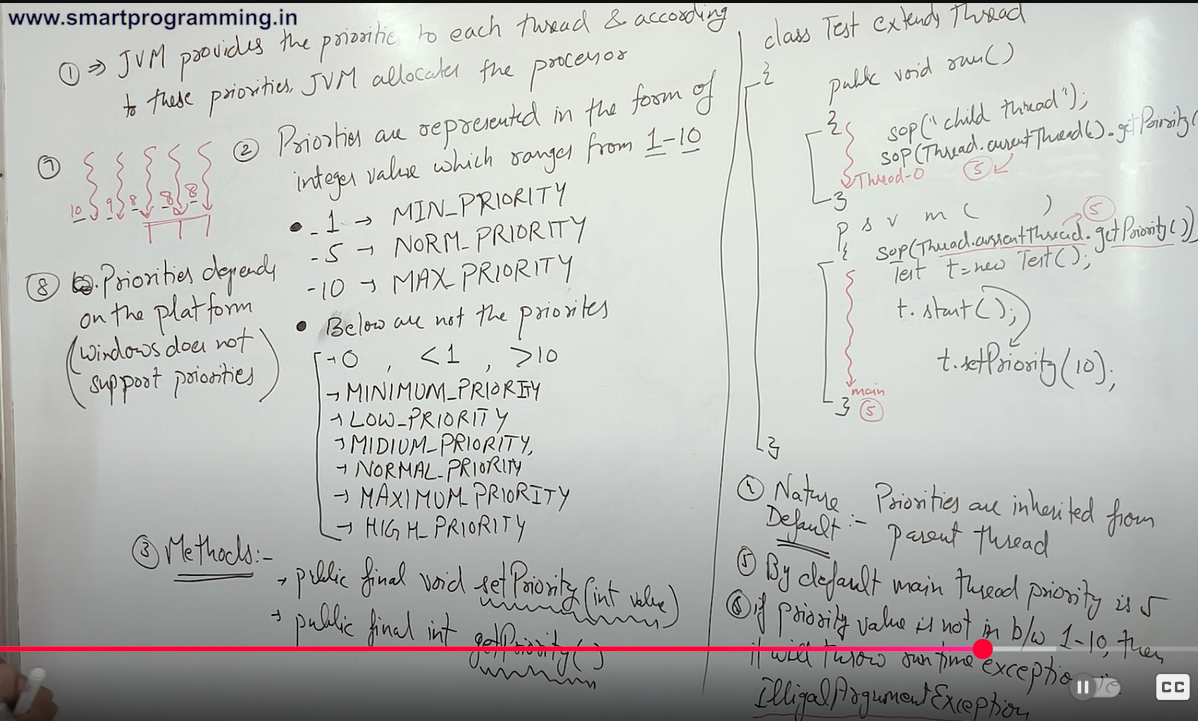 www.smartprogramming.in
① ⇒ JVM provides the prioritie to each thread & according
to these priorities, JVM allocates the processor
② Priorties are represented in the form of
integer value which ranges from 1-10
- 1 → MIN_PRIORITY
- 5 → NORM_PRIORITY
- 10 → MAX_PRIORITY
• Below are not the priorites
→ 0 , <1 , >10
→ MINIMUM_PRIORITY
→ LOW_PRIORITY
→ MIDIUM_PRIORITY,
→ NORMAL_PRIORITY
→ MAXIMUM_PRIORITY
→ HIGH_PRIORITY
⑦
10 9 8 8 8
⑧ Priorities depends
on the platform
(windows does not
support priorities)
③ Methods:-
→ public final void setPriority(int value)
→ public final int getPriority()
class Test extends Thread
{
public void run()
{
sop("child thread");
sop(Thread.currentThread().getPriority(
Thread-0
⑤
}
p s v m ( )
⑤
{
sop(Thread.currentThread.getPriority())
Test t=new Test();
t.start();
t.setPriority(10);
main
} ⑤
}
④ Nature Priorities are inherited from
Default:- parent thread
⑤ By default main thread priority is 5
⑥ if priority value is not in b/w 1-10, then
it will throw runtime exception
IlligalArgumentException
CC